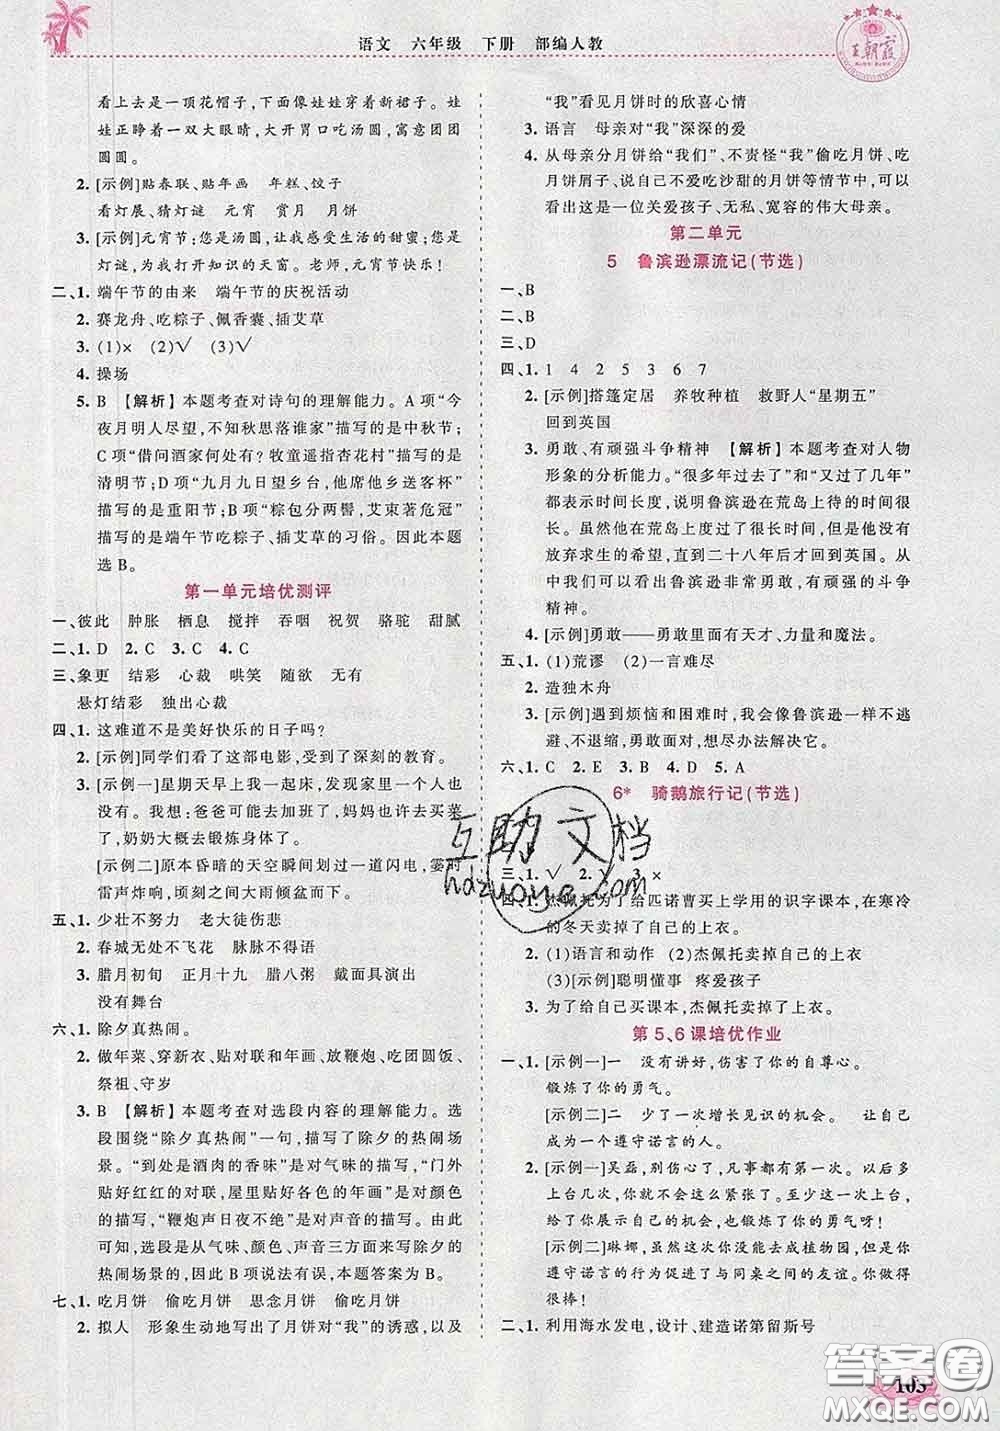 语文 六年级 下册 部编人教
王朝霞
看上去是一顶花帽子,下面像娃娃穿着新裙子。娃
娃正睁着一双大眼睛,大开胃口吃汤圆,寓意团团
圆圆。
2. [示例]贴春联、贴年画 年糕、饺子
看灯展、猜灯谜 元宵 赏月 月饼
3. [示例]元宵节:您是汤圆,让我感受生活的甜蜜;您是
灯谜,为我打开知识的天窗。老师,元宵节快乐!
二、1. 端午节的由来 端午节的庆祝活动
2. 赛龙舟、吃粽子、佩香囊、插艾草
3. (1)× (2)√ (3)√
4. 操场
5. B 【解析】本题考查对诗句的理解能力。A 项“今
夜月明人尽望,不知秋思落谁家”描写的是中秋节;
C 项“借问酒家何处有?牧童遥指杏花村”描写的是
清明节;D 项“九月九日望乡台,他席他乡送客杯”
描写的是重阳节;B 项“粽包分两髻,艾束著危冠”
描写的是端午节吃粽子、插艾草的习俗。因此本题
选 B。
第一单元培优测评
一、彼此 肿胀 栖息 搅拌 吞咽 祝贺 骆驼 甜腻
二、1. D 2. C 3. C 4. C
三、象更 结彩 心裁 哄笑 随欲 无有
悬灯结彩 独出心裁
四、1. 这难道不是美好快乐的日子吗?
2. [示例]同学们看了这部电影,受到了深刻的教育。
3. [示例一]星期天早上我一起床,发现家里一个人也
没有。我想:爸爸可能去加班了,妈妈也许去买菜
了,奶奶大概去锻炼身体了。
[示例二]原本昏暗的天空瞬间划过一道闪电,霎时
雷声炸响,顷刻之间大雨倾盆而下。
五、1. 少壮不努力 老大徒伤悲
2. 春城无处不飞花 脉脉不得语
3. 腊月初旬 正月十九 腊八粥 戴面具演出
没有舞台
六、1. 除夕真热闹。
2. 做年菜、穿新衣、贴对联和年画、放鞭炮、吃团圆饭、
祭祖、守岁
3. B 【解析】本题考查对选段内容的理解能力。选
段围绕“除夕真热闹”一句,描写了除夕的热闹场
景。“到处是酒肉的香味”是对气味的描写,“门外
贴好红红的对联,屋里贴好各色的年画”是对颜色
的描写,“鞭炮声日夜不绝”是对声音的描写。由此
可知,选段是从气味、颜色、声音三方面来写除夕的
热闹场景的。因此 B 项说法有误,本题答案为 B。
七、1. 吃月饼 偷吃月饼 思念月饼 偷吃月饼
2. 拟人 形象生动地写出了月饼对“我”的诱惑,以及
“我”看见月饼时的欣喜心情
3. 语言 母亲对“我”深深的爱
4. 从母亲分月饼给“我们”、不责怪“我”偷吃月饼、吃
月饼屑子、说自己不爱吃沙甜的月饼等情节中,可以
看出这是一位关爱孩子、无私、宽容的伟大母亲。
第二单元
5 鲁滨逊漂流记(节选)
一、B
二、B
三、D
四、1. 1 4 2 5 3 6 7
2. [示例]搭篷定居 养牧种植 救野人“星期五”
回到英国
3. 勇敢、有顽强斗争精神 【解析】本题考查对人物
形象的分析能力。“很多年过去了”和“又过了几年”
都表示时间长度,说明鲁滨逊在荒岛上待的时间很
长。虽然他在荒岛上度过了很长时间,但是他没有
放弃求生的希望,直到二十八年后才回到英国。从
中我们可以看出鲁滨逊非常勇敢,有顽强的斗争
精神。
4. [示例]勇敢——勇敢里面有天才、力量和魔法。
五、1. (1)荒谬 (2)一言难尽
2. 造独木舟
3. [示例]遇到烦恼和困难时,我会像鲁滨逊一样不逃
避、不退缩,勇敢面对,想尽办法解决它。
六、1. C 2. E 3. B 4. D 5. A
6* 骑鹅旅行记(节选)
三、1. √ 2. √ 3. ×
四、1. 杰佩托为了给匹诺曹买上学用的识字课本,在寒冷
的冬天卖掉了自己的上衣。
2. (1)语言和动作 (2)杰佩托卖掉了上衣
(3)[示例]聪明懂事 疼爱孩子
3. 为了给自己买课本,杰佩托卖掉了上衣。
第 5、6 课培优作业
一、1. [示例一]一 没有讲好,伤害了你的自尊心。
锻炼了你的勇气。
[示例二]二 少了一次增长见识的机会。 让自己
成为一个遵守诺言的人。
2. [示例一]吴磊,别伤心了,凡事都有第一次。以后多
上台几次,你就不会这么紧张了。至少这一次上台,
给了你展示自己的机会,也锻炼了你的勇气呀!
[示例二]琳娜,虽然这次你没能去成植物园,但是你
遵守诺言的行为促进了与同桌之间的友谊。你做得
很棒!
二、1. 利用海水发电,设计、建造诺第留斯号
互助文档
hdzuoye.com
103
答案圈
MXQE.COM